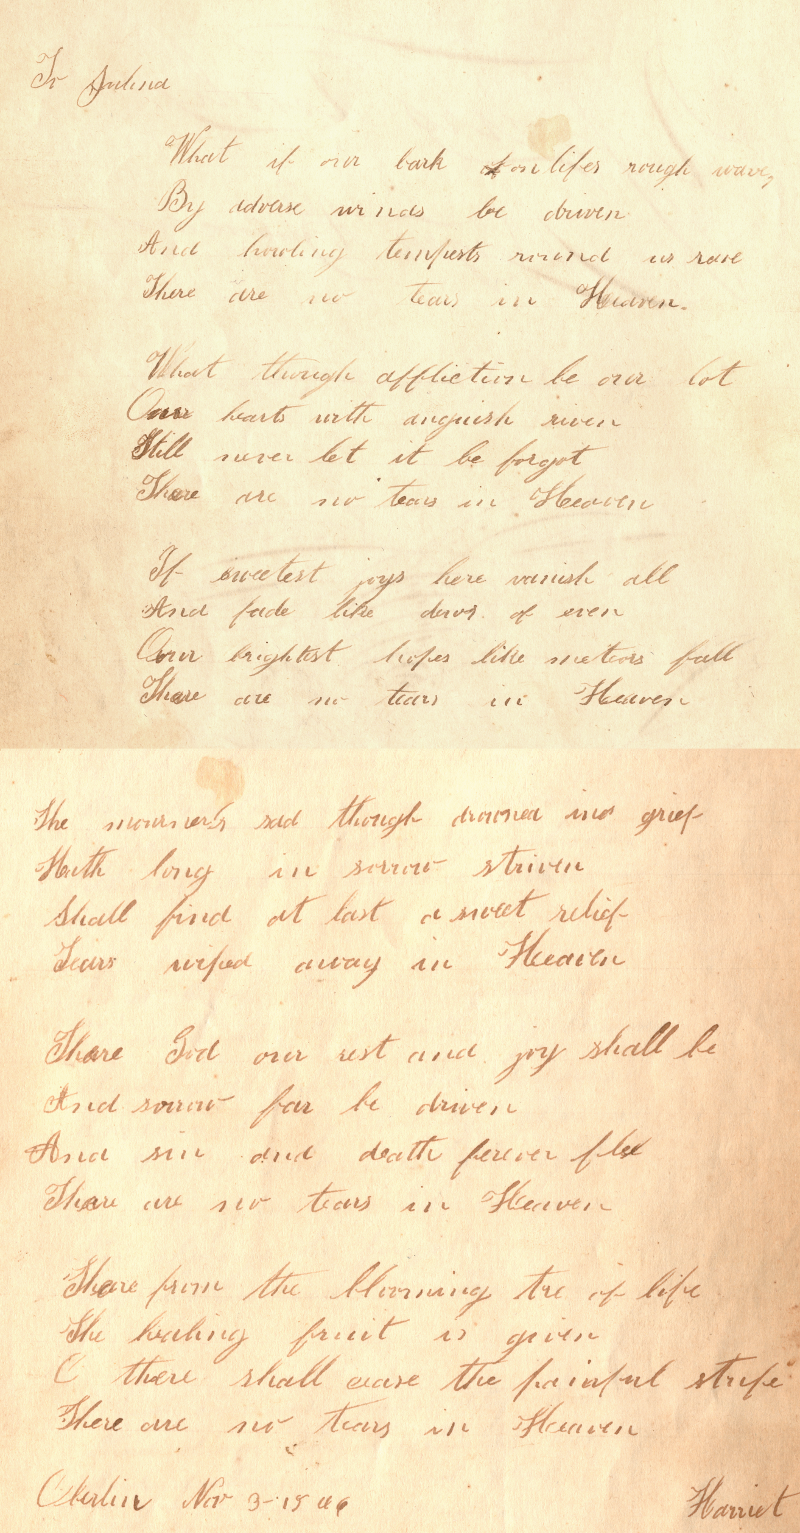 To
What if our bark on lifes rough wave,
By adverse winds be driven
And howling tempests round us rave
There are no tears in Heaven.
What though affliction be our lot
Our hearts with anguish riven
Still never let it be forgot
There are no tears in Heaven
If sweetest joys here vanish all
And fade like dews of even
Our brightest hopes like meteors fall
There are no tears in Heaven
The mourner's sad though drowned in grief
Hath long in sorrow striven
Shall find at last a sweet relief
Tears wiped away in Heaven
There God our rest and joy shall be
And sorrow far be driven
And sin and death forever flee
There are no tears in Heaven
There from the blooming tre of life
The healing fruit is given
O there shall cease the painful strife
There are no tears in Heaven
Oberlin Nov 3-
Harriet